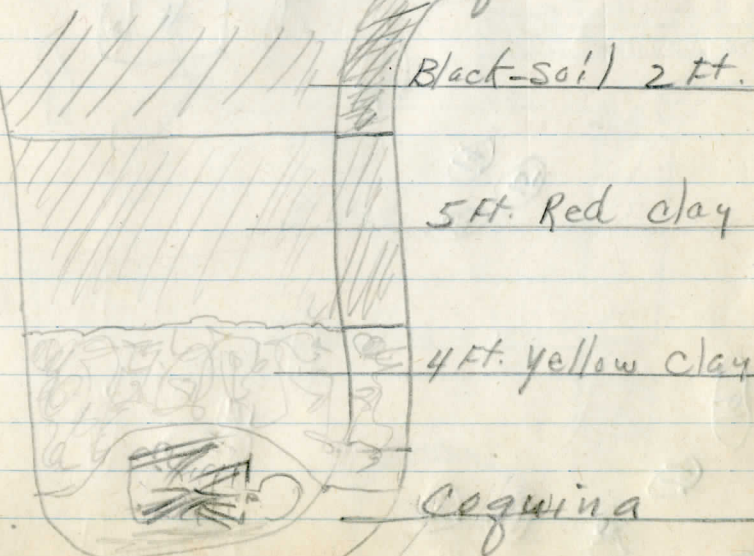 Black-Soil 2 Ft.
5 Ft. Red clay
4 Ft. yellow clay
Coquina